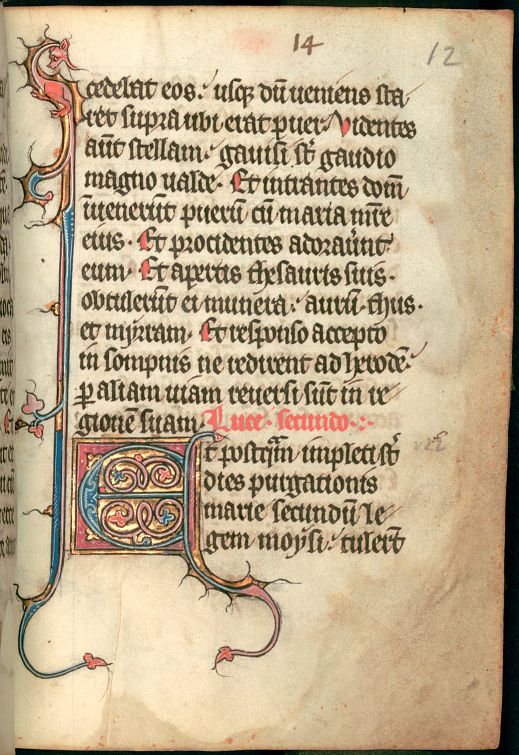 14
12
cedebat eos. usq; dū ueniens sta/
ret supra ubi erat puer. Videntes
aūt stellam. gauisi sūt gaudio
magno ualde. Et intrantes domū
inuenerūt puerū cū maria mr̄e
eius. Et procidentes adorauūnt
eum. Et apertis thesauris suis.
obtulerūt ei munera. aurū. thus.
et mirram. Et responso accepto
in sompnis ne redirent ad herodē.
p aliam uiam reuersi sūt in re
gionē suam. Luce. secundo.
Et postq̄m impleti sūt
dies purgationis
marie secundū le/
gem moysi. tulerūt